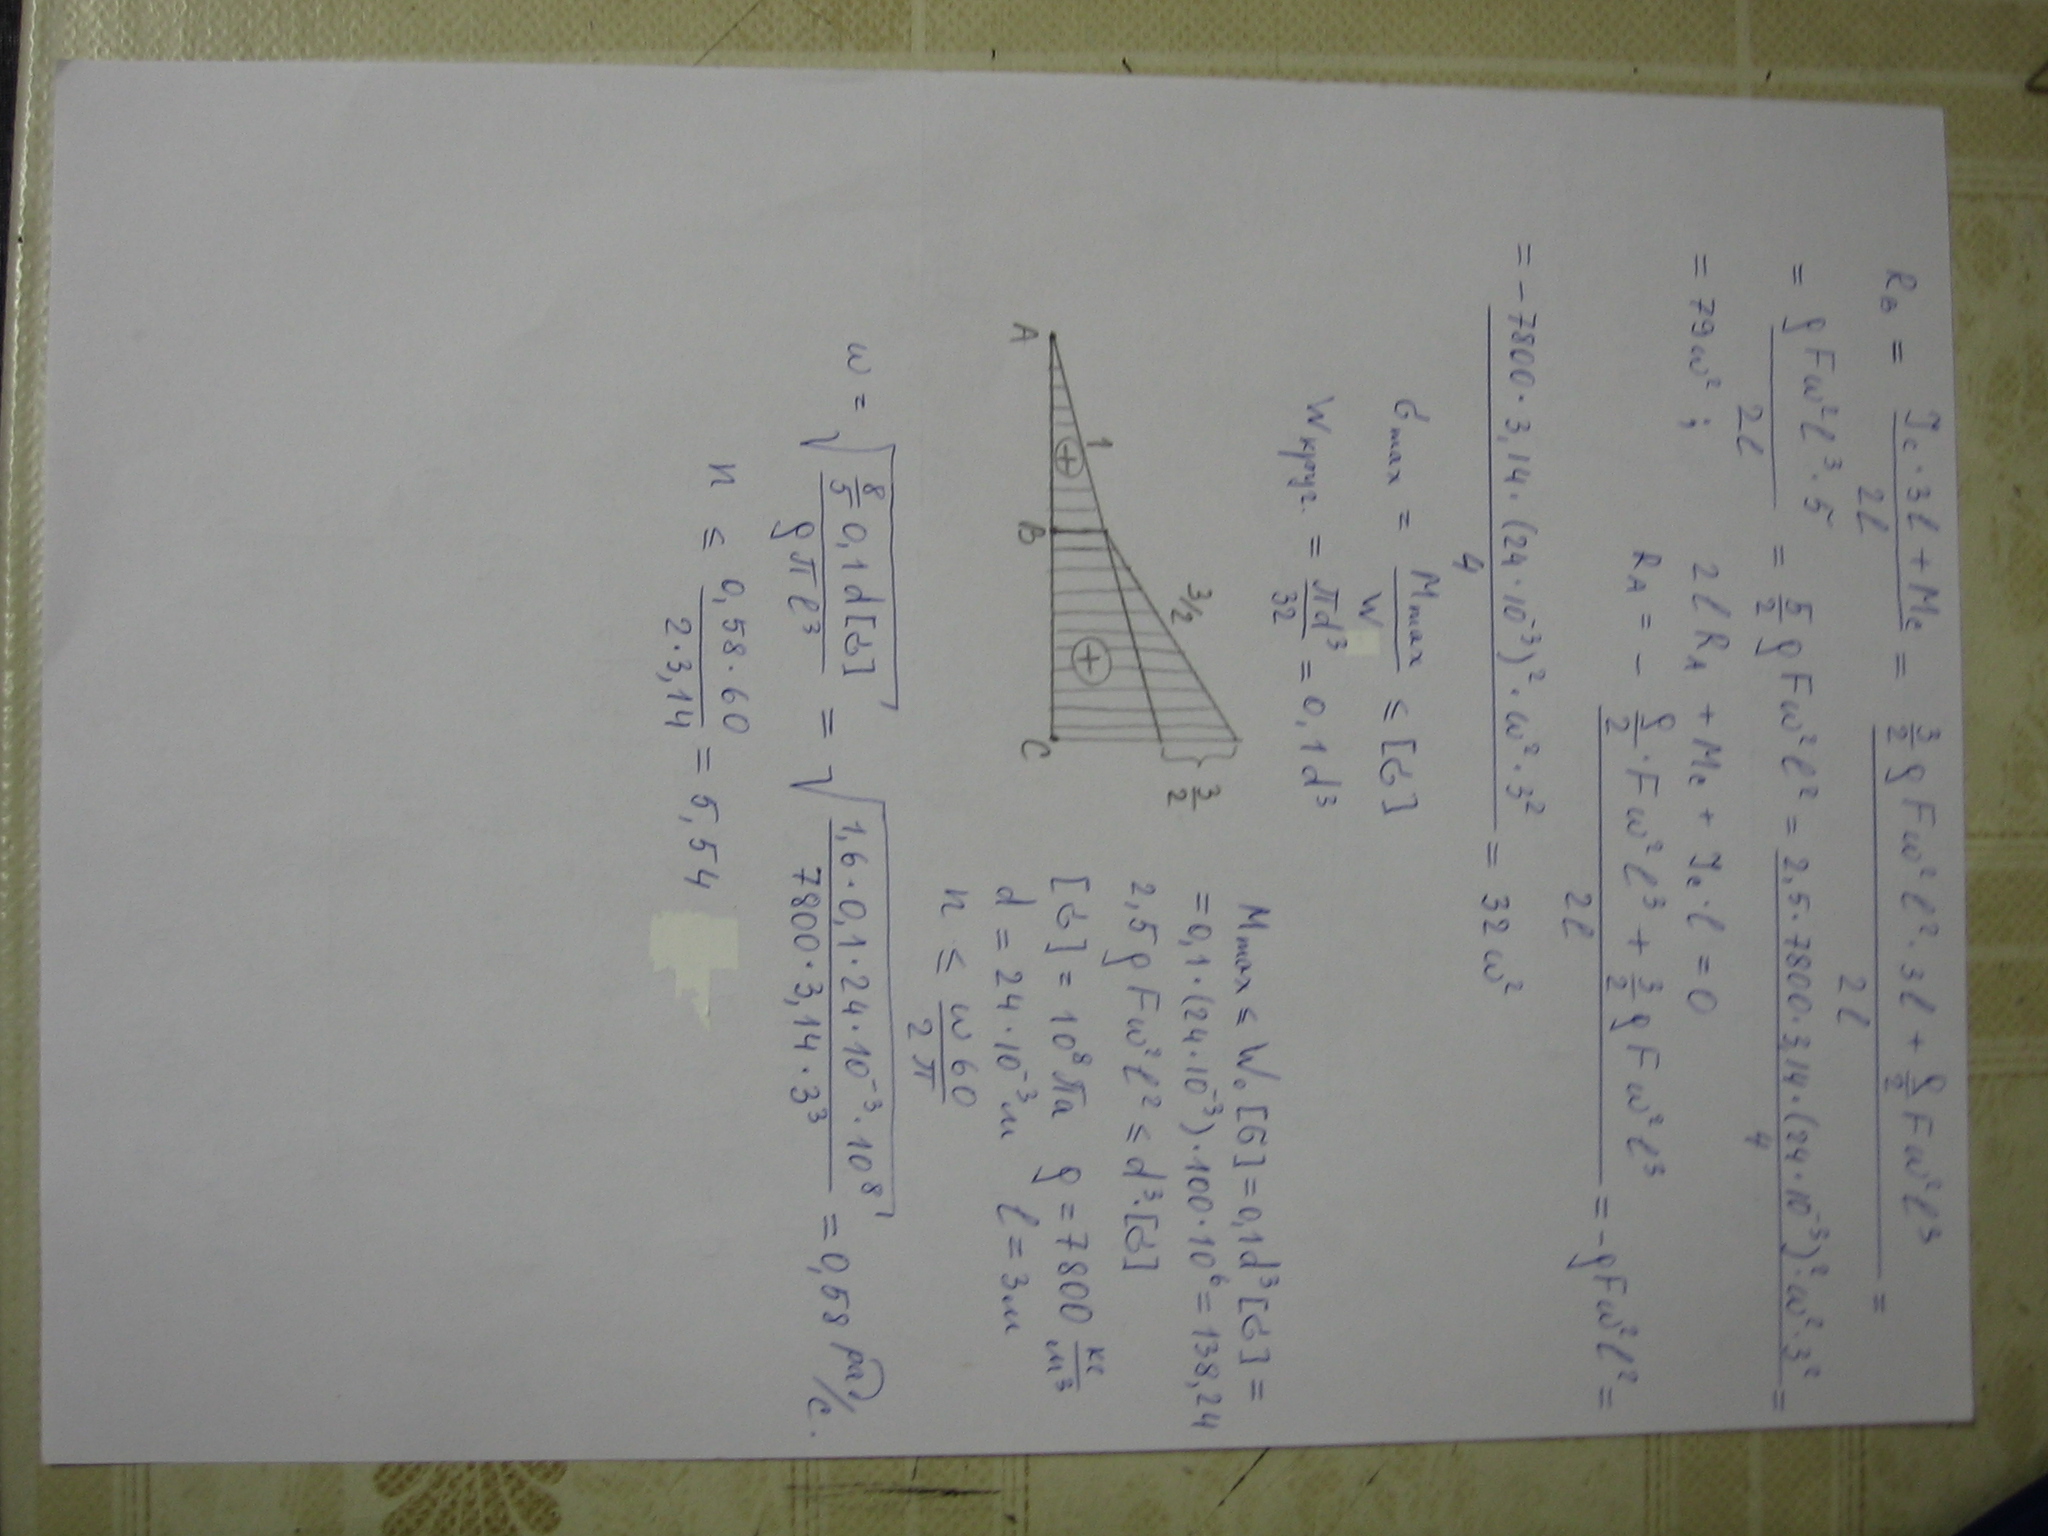 R_B = (J_c · 3l + M_c)/(2l) = (3/2 ρFω²l² · 3l + ρ/2 Fω²l³)/(2l) =
= (ρFω²l³ · 5)/(2l) = 5/2 ρFω²l² = (2,5 · 7800 · 3,14 · (24 · 10⁻³)² · ω² · 3²)/4 =
= 79ω² ; 2lR_A + M_c + J_c · l = 0
R_A = - (ρ/2 · Fω²l³ + 3/2 ρFω²l³)/(2l) = -ρFω²l² =
= (-7800 · 3,14 · (24 · 10⁻³)² · ω² · 3²)/4 = 32ω²
σmax = Mmax/W ≤ [σ]
Wкруг. = πd³/32 = 0,1d³
Mmax ≤ W₀[σ] = 0,1d³[σ] =
= 0,1 · (24 · 10⁻³) · 100 · 10⁶ = 138,24
2,5ρFω²l² ≤ d³ · [σ]
[σ] = 10⁸ Па ρ = 7800 кг/м³
d = 24 · 10⁻³ м l = 3 м
n ≤ ω60/2π
1
3/2
3/2
+
+
A
B
C
ω = √((8/5 0,1d[σ])/(ρπl³)) = √((1,6 · 0,1 · 24 · 10⁻³ · 10⁸)/(7800 · 3,14 · 3³)) = 0,58 рад/с.
n ≤ (0,58 · 60)/(2 · 3,14) = 5,54